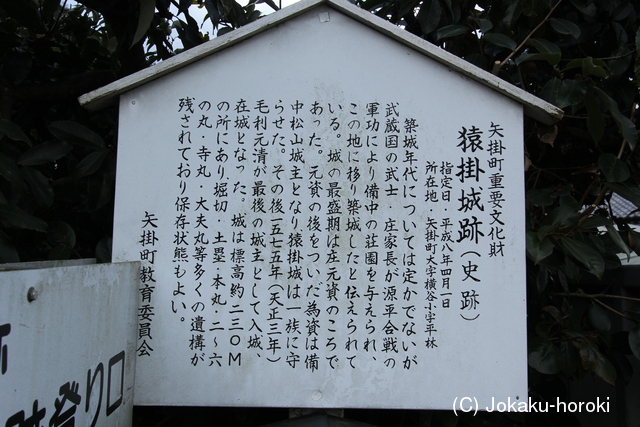 矢掛町重要文化財
猿掛城跡(史跡)
指定日・平成八年四月一日
所在地・矢掛町大字横谷小字平林
築城年代については定かでないが
武蔵国の武士 庄家長が源平合戦の
軍功により備中の荘園を与えられ、
この地に移り築城したと伝えられて
いる。城の最盛期は庄元資のころで
あった。元資の後をついだ為資は備
中松山城主となり猿掛城は一族に守
らせた。その後一五七五年(天正三年)
毛利元清が最後の城主として入城、
在城となった。城は標高約二三〇M
の所にあり堀切・土塁・本丸・二〜六
の丸・寺丸・大夫丸等多くの遺構が
残されており保存状態もよい。
矢掛町教育委員会
跡登り口
(C) Jokaku-horoki